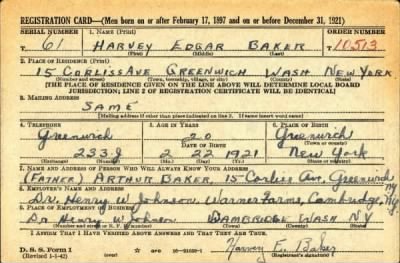 REGISTRATION CARD—(Men born on or after February 17, 1897 and on or before December 31, 1921)
SERIAL NUMBER 1. NAME (Print) ORDER NUMBER
T 61 HARVEY EDGAR BAKER 10,513
(First) (Middle) (Last)
2. PLACE OF RESIDENCE (Print)
15 CORLISS AVE GREENWICH WASH NEW YORK
(Number and street) (Town, township, village, or city) (County) (State)
[THE PLACE OF RESIDENCE GIVEN ON THE LINE ABOVE WILL DETERMINE LOCAL BOARD
JURISDICTION; LINE 2 OF REGISTRATION CERTIFICATE WILL BE IDENTICAL]
3. MAILING ADDRESS
SAME
[Mailing address if other than place indicated on line 2. If same insert word same]
4. TELEPHONE 5. AGE IN YEARS 6. PLACE OF BIRTH
Greenwich 20 Greenwich
DATE OF BIRTH (Town or county)
233J 2 22 1921 New York
(Exchange) (Number) (Mo.) (Day) (Yr.) (State or country)
7. NAME AND ADDRESS OF PERSON WHO WILL ALWAYS KNOW YOUR ADDRESS
(FATHER) ARTHUR BAKER, 15 Corliss Ave, Greenwich NY
8. EMPLOYER'S NAME AND ADDRESS
Dr. Henry W Johnson Warner Farms, Cambridge, NY
9. PLACE OF EMPLOYMENT OR BUSINESS
Dr Henry W Johnson CAMBRIDGE WASH NY
(Number and street or R. F. D. number) (Town) (County) (State)
I AFFIRM THAT I HAVE VERIFIED ABOVE ANSWERS AND THAT THEY ARE TRUE.
D. S. S. Form 1 (Revised 1-1-42) (over) 16-21630-1 Harvey E. Baker
(Registrant's signature)